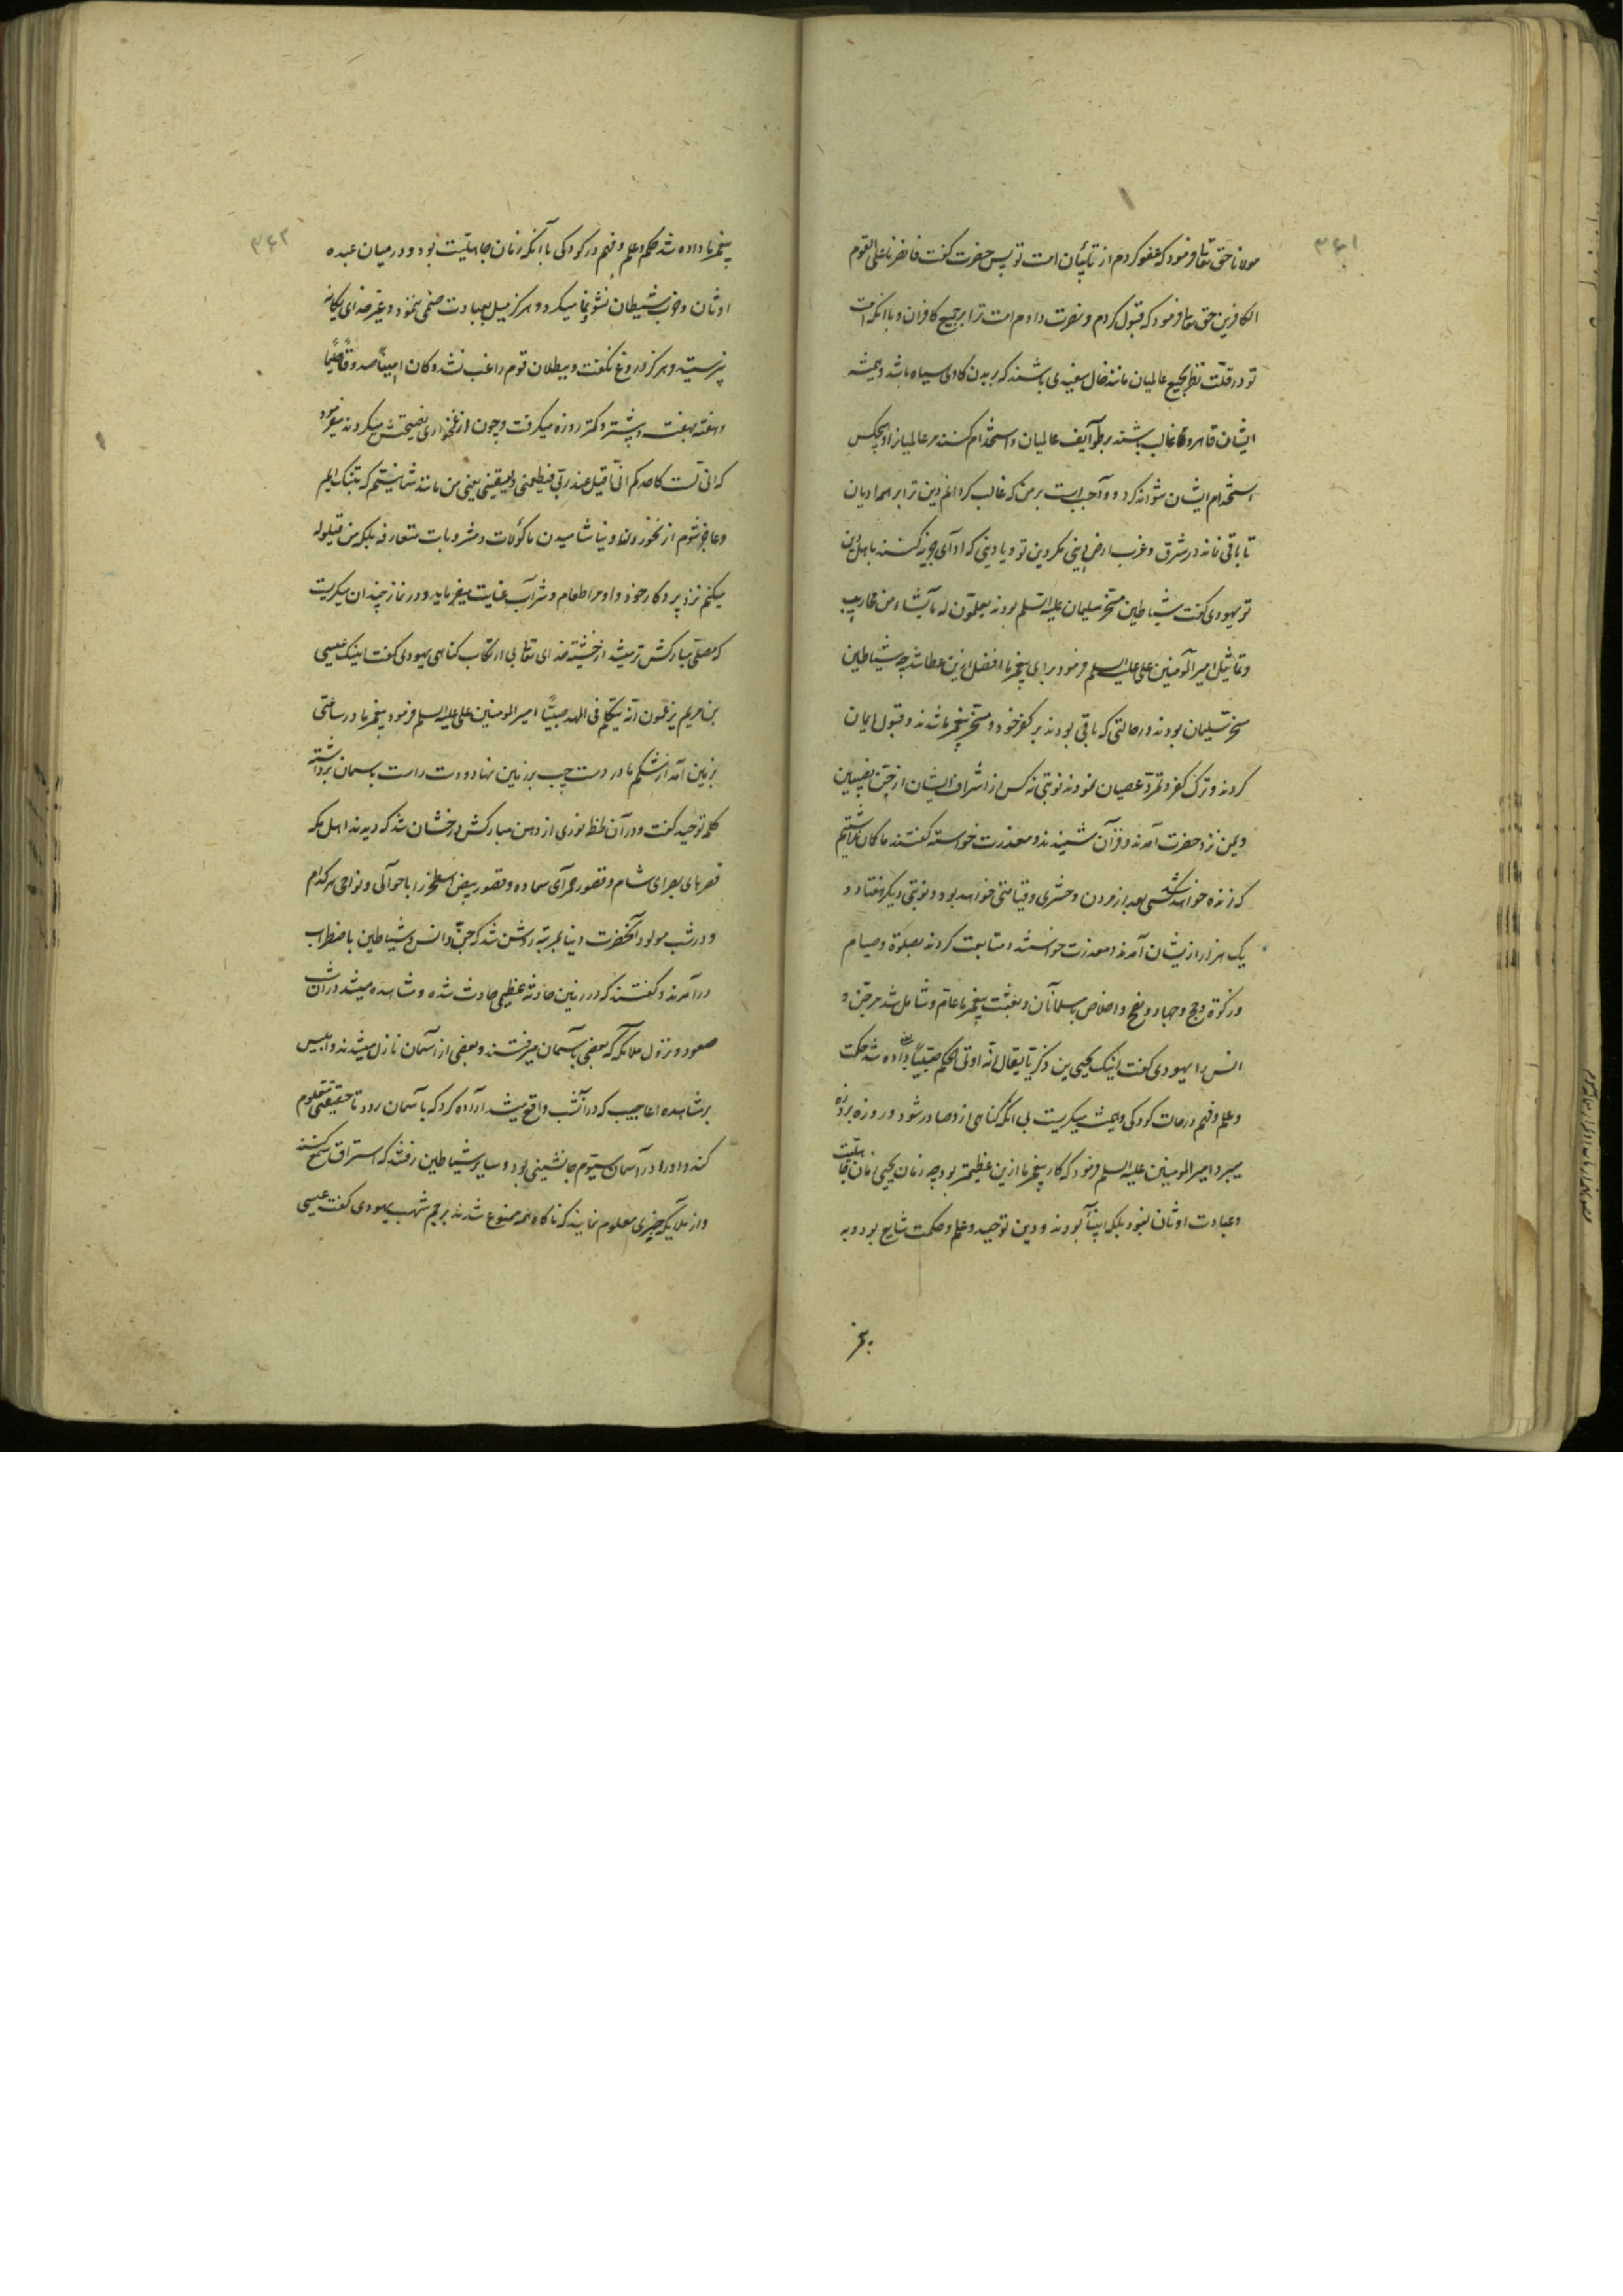 ۳۶۱
مولانا حق تعا فرمود که عفو کردم از تائبان امت تو پس حضرت گفت فانصرنا علی القوم
الکافرین حق تعا فرمود که قبول کردم و نصرت دادم امت ترا بر جمیع کافران و با آنکه امت
تو در قلت نظر بجمیع عالمیان مانند خال سفیدی باشند که بر بدن گاوی سیاه باشد و همیشه
ایشان قاهر و غالب باشند بر طوآیف عالمیان و استخدام کنند بر عالمیانرا و هیچکس
استخدام ایشان نتواند کرد و وآجب است بر من که غالب گردانم دین ترا بر همه ادیان
تا باقی نماند در شرق و غرب ارض دینی مگر دین تو و یا دینی که ادآی جزیه کنند باهل دین
تو یهودی گفت شیاطین مسخر سلیمان علیه السلم بودند یعملون له ما یشاء من محاریب
و تماثیل امیر المومنین علی علیه السلم فرمود برای پیغمبر ما افضل ازین عطا شد چه شیاطین
مسخر سلیمان بودند در حالتی که باقی بودند بر کفر خود و مسخر پیغمبر ما شدند و قبول ایمان
کردند و ترک کفر و تمرد و عصیان نمودند نوبتی نه کس از اشراف ایشان از جن نصیبین
و یمن نزد حضرت آمدند و قرآن شنیدند و معذرت خواسته گفتند ما گمان نداشتیم
که زنده خواهد شد کسی بعد از مردن و حشری و قیامتی خواهد بود و نوبتی دیگر هفتاد و
یک هزار از ایشان آمدند و معذرت خواستند و متابعت کردند بصلوة و صیام
و زکوة و حج و جهاد و نصح و اخلاص بمسلمانان و بعثت پیغمبر ما عام و شامل شد مر جن و
انس را یهودی گفت اینک یحیی بن ذکریا یقال انه اوتی الحکم صبیا داده شد حکمت
و علم و فهم در حالت کودکی و همیشه میگریست بی آنکه گناهی ازو صادر شود و روزه بروزه
میبرد امیر المومنین علیه السلم فرمود که کار پیغمبر ما ازین عظیمتر بود چه زمان یحیی زمان جاهلیت
و عبادت اوثان نبود بلکه انبیآ بودند و دین توحید و علم و حکمت شایع بود و به
۳۶۲
پیغمبر ما داده شد حکم و علم و فهم در کودکی با آنکه زمان جاهلیت بود و در میان عبده
اوثان و حزب شیطان نشو و نما میکرد و هرگز میل بعبادت صنمی ننمود و غیر خدای یگانه
نپرستید و هرگز دروغ نگفت و ببطلان قوم راغب نشد و کان امینا صدوقا حلیما
و هفته بهفت و بیشتر و کمتر روزه میگرفت و چون از غمخواری نصیحتش میکردند میفرمود
که انی لست کاحدکم انی اقیل عند ربی فیطعمنی و یسقینی یعنی من مانند شما نیستم که بتنگ آیم
و عاجز شوم از نخوردن و نیاشامیدن ماکولات و مشروبات متعارفه بلکه من قیلوله
میکنم نزد پروردکار خود و او مرا طعام و شرآب عنایت میفرماید و در نماز چندان میگریست
که مصلی مبارکش تر میشد از خشیة خدای تعا بی ارتکاب گناهی یهودی گفت اینک عیسی
بن مریم یزعمون انه تکلم فی المهد صبیا امیر المومنین علی علیه السلم فرمود پیغمبر ما در ساعتی
بزمین آمد از شکم مادر دست چپ بر زمین نهاد و دست راست بآسمان برداشته
کلمه توحید گفت و در آن لحظه نوری از دهن مبارکش درخشان شد که دیدند اهل مکه
قصرهای بصرای شام و قصور حمرآی سماده و قصور بیض اصطخر را با حوآلی و نواحی هر کدام
و در شب مولود آنحضرت دنیا بمرتبه روشن شد که جن و انس و شیاطین باضطراب
درآمدند و گفتند که در زمین حادثه عظیمی حادث شده و مشاهده میشد در آن شب
صعود و نزول ملائکه که بعضی بآسمان میرفتند و بعضی از آسمان نازل میشدند و ابلیس
بر مشاهده اعاجیب که در آنشب واقع میشد اراده کرد که بآسمان رود تا حقیقتی معلوم
کند و او را در آسمان سیوم جانشینی بود و سایر شیاطین رفتند که استراق سمع کنند
و از ملایکه چیزی معلوم نمایند که ناگاه همه ممنوع شدند برجم شهب یهودی گفت عیسی